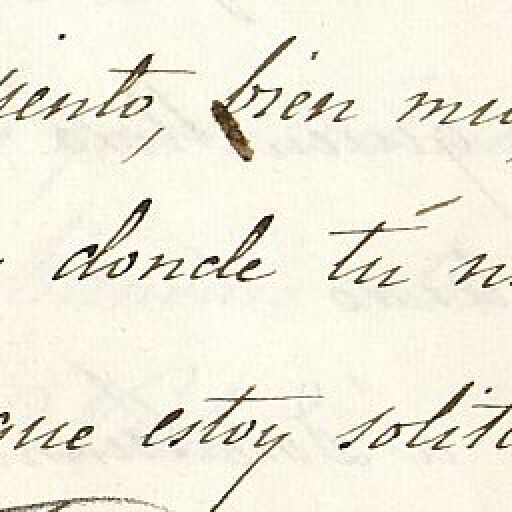 iento, bien mu
donde tú n
que estoy solit